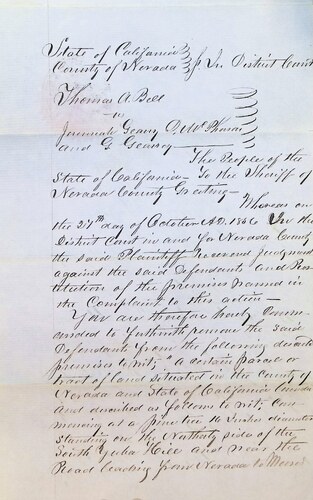 State of California
County of Nevada } In District Court
Thomas A. Bell
vs
Jeremiah Geary D. McThomas
and G Geary
The People of the
State of California — To the Sheriff of
Nevada County Greeting —
Whereas on
the 27th day of October A.D. 1856 In the
District Court in and for Nevada County
the said Plaintiff recovered Judgment
against the said Defendants and Res-
titution of the premises named in
the Complaint to this action —
You are therefore hereby Comm-
anded to forthwith remove the said
Defendants from the following described
premises to wit, "a certain parcel or
tract of land situated in the County of
Nevada and State of California
and described as follows to wit, Com-
mencing at a pine tree 16 inches diameter
standing on the Northerly side of the
South Yuba Hill and near the
Road leading from Nevada to